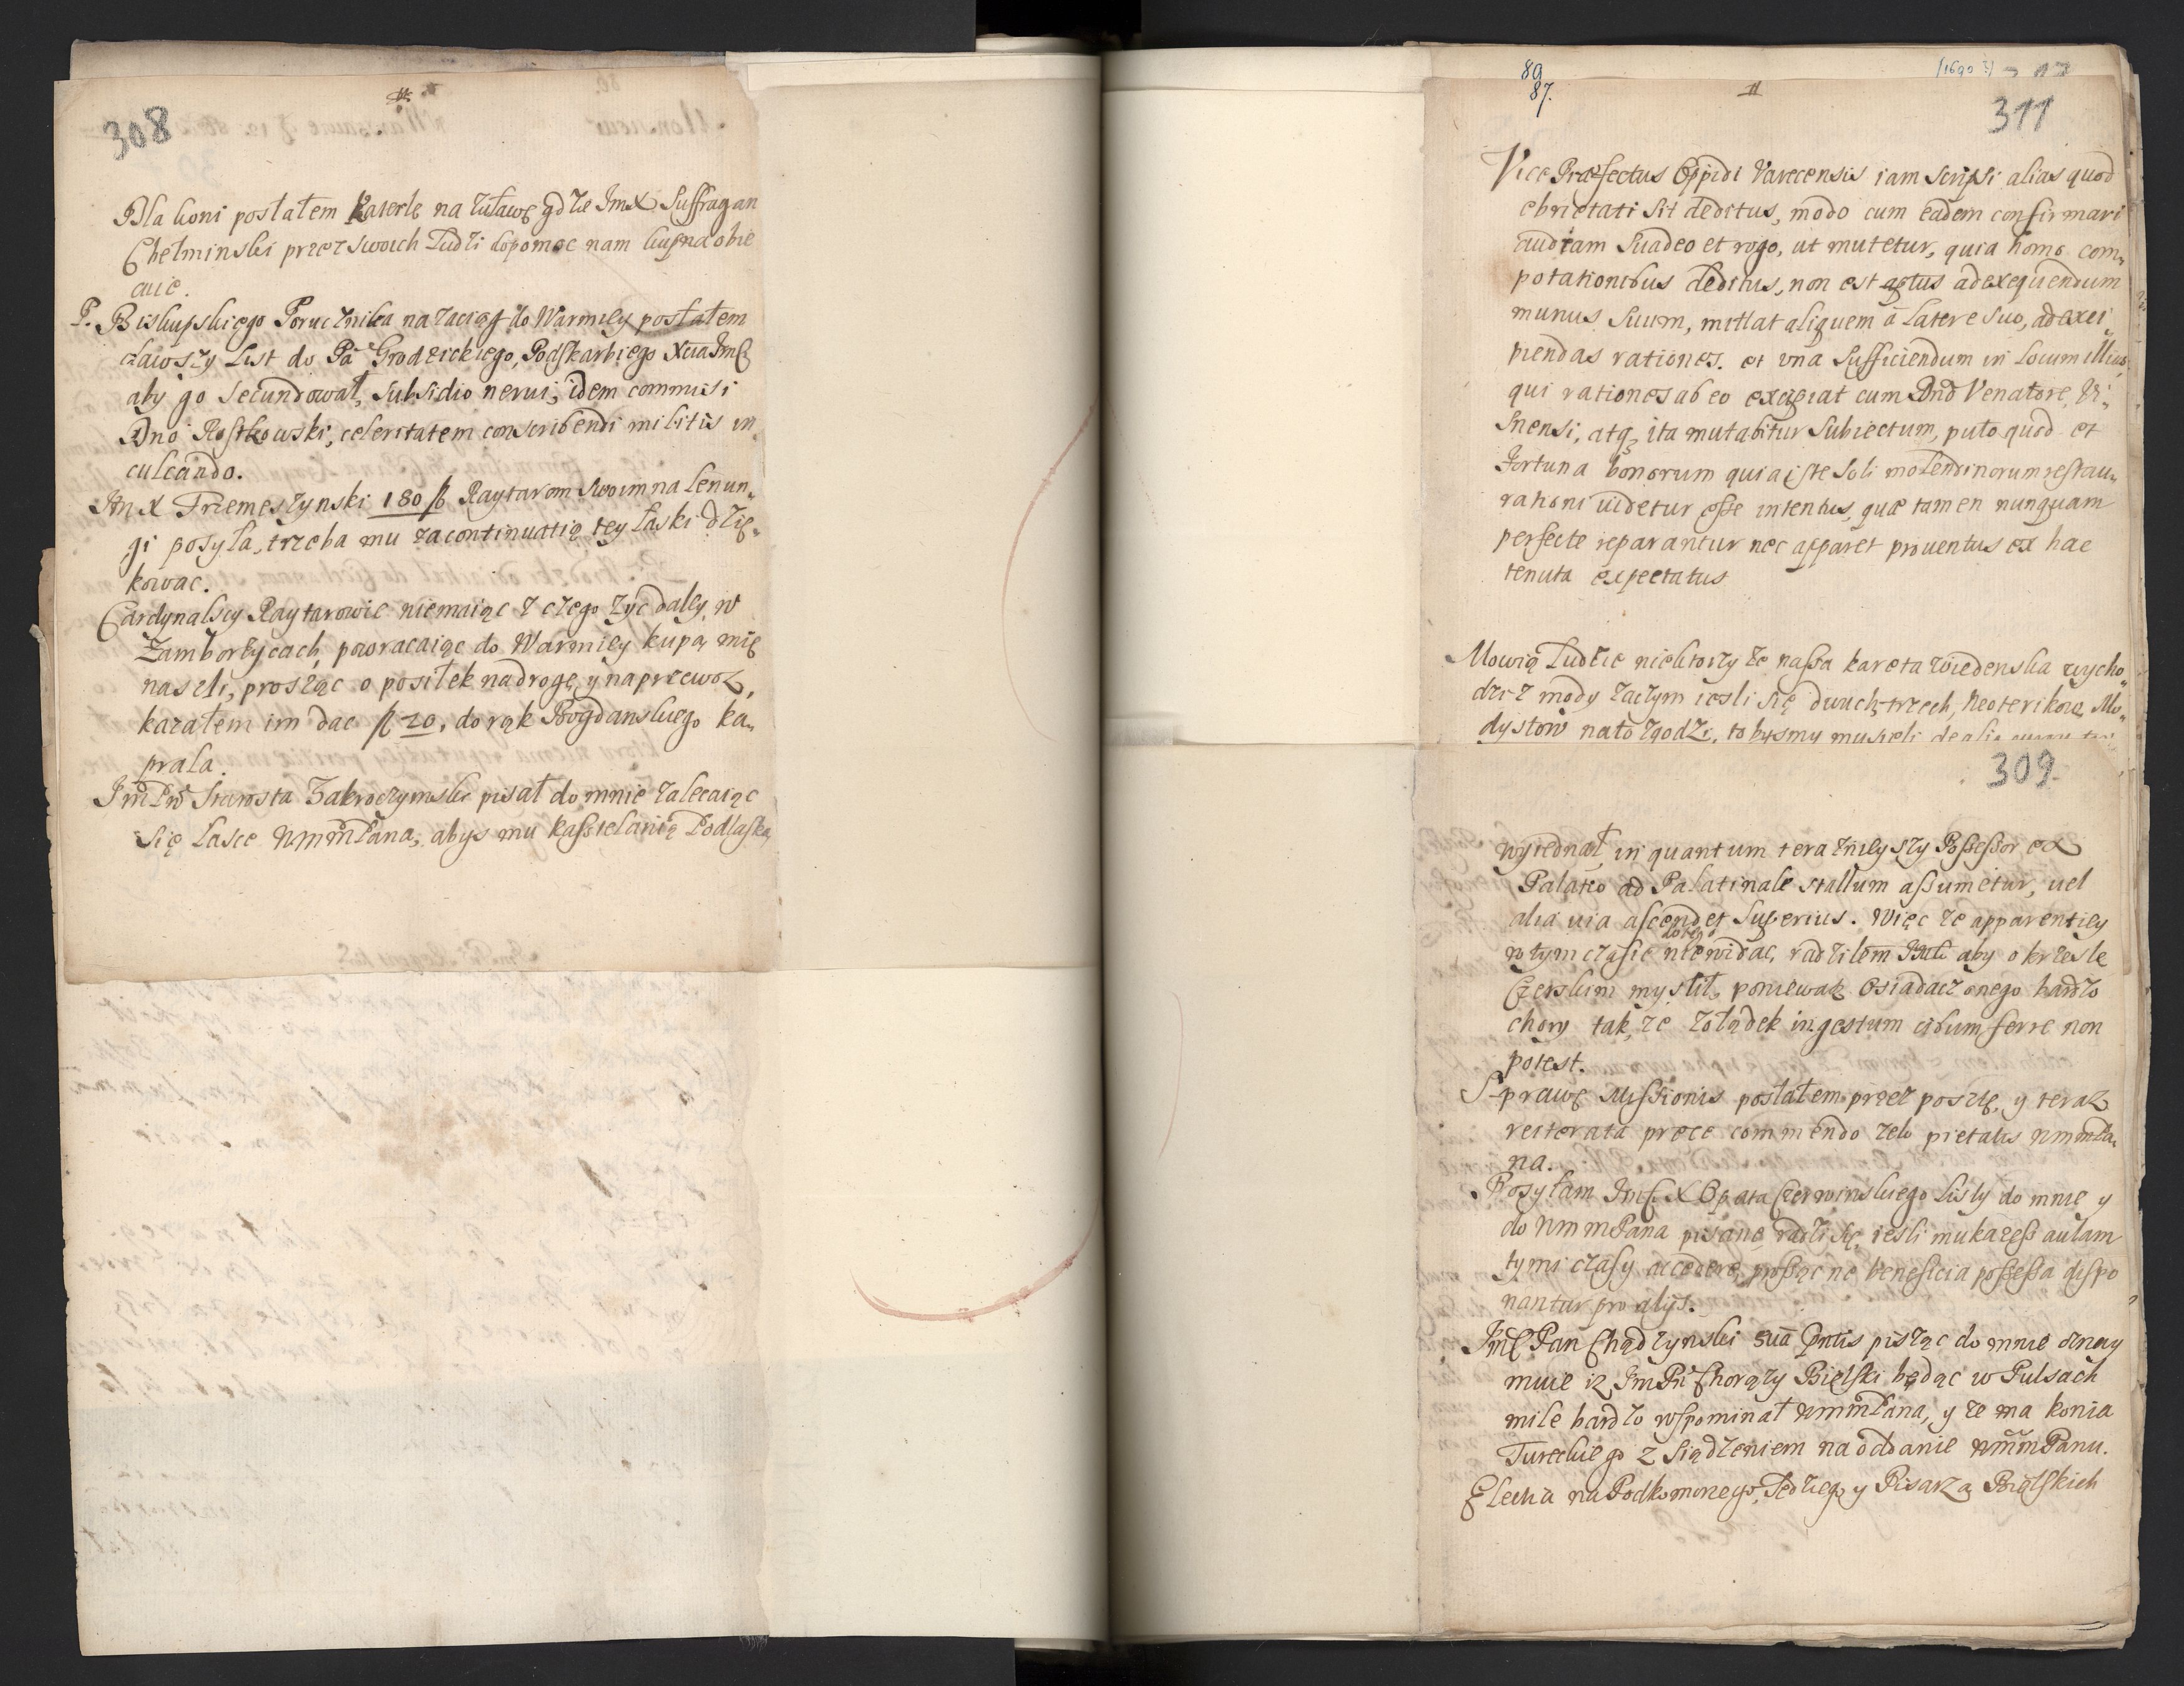 308
Dla koni posłałem Katerlę na Zuławę gdzie ImX Suffragan
Chełminski przez swoich Ludzi dopomoc nam kupna obie
cuie.
P. Biskupskiego Porucznika na zaciąg do Warmiey posłałem
dawszy List do Pa Grodzickiego, Podskarbiego Xcia Im̃c̃
aby go secundował, subsidio nerui, idem commisi
Dno Rostkowski, celeritatem conscribendi militis in
culcando.
Im X Trzemeszynski 180 ƒ Raytarom swoim na lenun„
gi posyła, trzeba mu za continuatią tey łaski dzię„
kowac.
Cardynalscy Raytarowie niemaiąc z czego zyc daley w
Zamborzycach, powracaiąc do Warmiey kupą mię
naszli, prosząc o posiłek na drogę, y na przewoz,
kazałem im dac ƒ 20, do rąk Bogdanskiego ka„
prala.
Im Pn Starosta Zakroczymski pisał do mnie zalecaiąc
się Łasce WmmPana, abys mu kasztelanią Podlaską
89
87.
(1690 ?)
311
Vice Præfectus Oppidi Varecensis iam scripsi alias quod
ebrietati sit deditus, modo cum eadem confirmari
audiam suadeo et rogo, ut mutetur, quia homo com„
potationibus deditus, non est aptus ad exequendum
munus suum, mittat aliquem a Latere suo, ad exci„
piendas rationes. et una sufficiendum in Locum illius
qui rationes ab eo excipiat cum Dnõ Venatore
Snensi, atq, ita mutabitur subiectum, puto quod et
Fortuna bonorum quia iste soli molendinorum restau„
rationi uidetur esse intentus, quæ tamen nunquam
perfecte reparantur nec apparet prouentus ex hac
tenuta expectatus
Mowią Ludzie niektorzy ze nassa kareta wiedenska wycho„
dzi z mody zaczym iesli się dwuch, trzech, Neoterikow, Mo„
dystow na to zgodzi, to bysmy musieli
309.
wyiednał, in quantum teraznieyszy Possessor ex
Palatio ad Palatinale stallum assumetur, uel
alia uia ascendet superius. Więc ze apparentiey
do tego
w tym czasie niewidac, radziłem aby o krzesle
Czerskim myslił, poniewaz Osiadacz onego bardzo
chory tak, ze zołądek ingestum cibum ferre non
potest.
Sprawę Missionis posłałem przez posztę, y teraz
reiterata prece commendo zelo pietatis WmmPa„
na.
Posyłam Im̃c̃ X Opata Czerwinskiego Listy do mnie y
do WmmPana pisane, radzi się, iesli mu kazess aulam
tymi czasy accedere, prosząc ne beneficia possessa dispo
nantur pro alijs.
Im̃c̃ Pan Chądzynski sua pntis pisząc do mnie oznay
muie iz Im Pn Chorązy Bielski będąc w Pulsach
mile bardzo wspominał WmmPana, y ze ma konia
Tureckiego z siądzeniem na oddanie WmmPanu.
Electia na Podkomorzego, Sędziego y Pisarza Bielskich